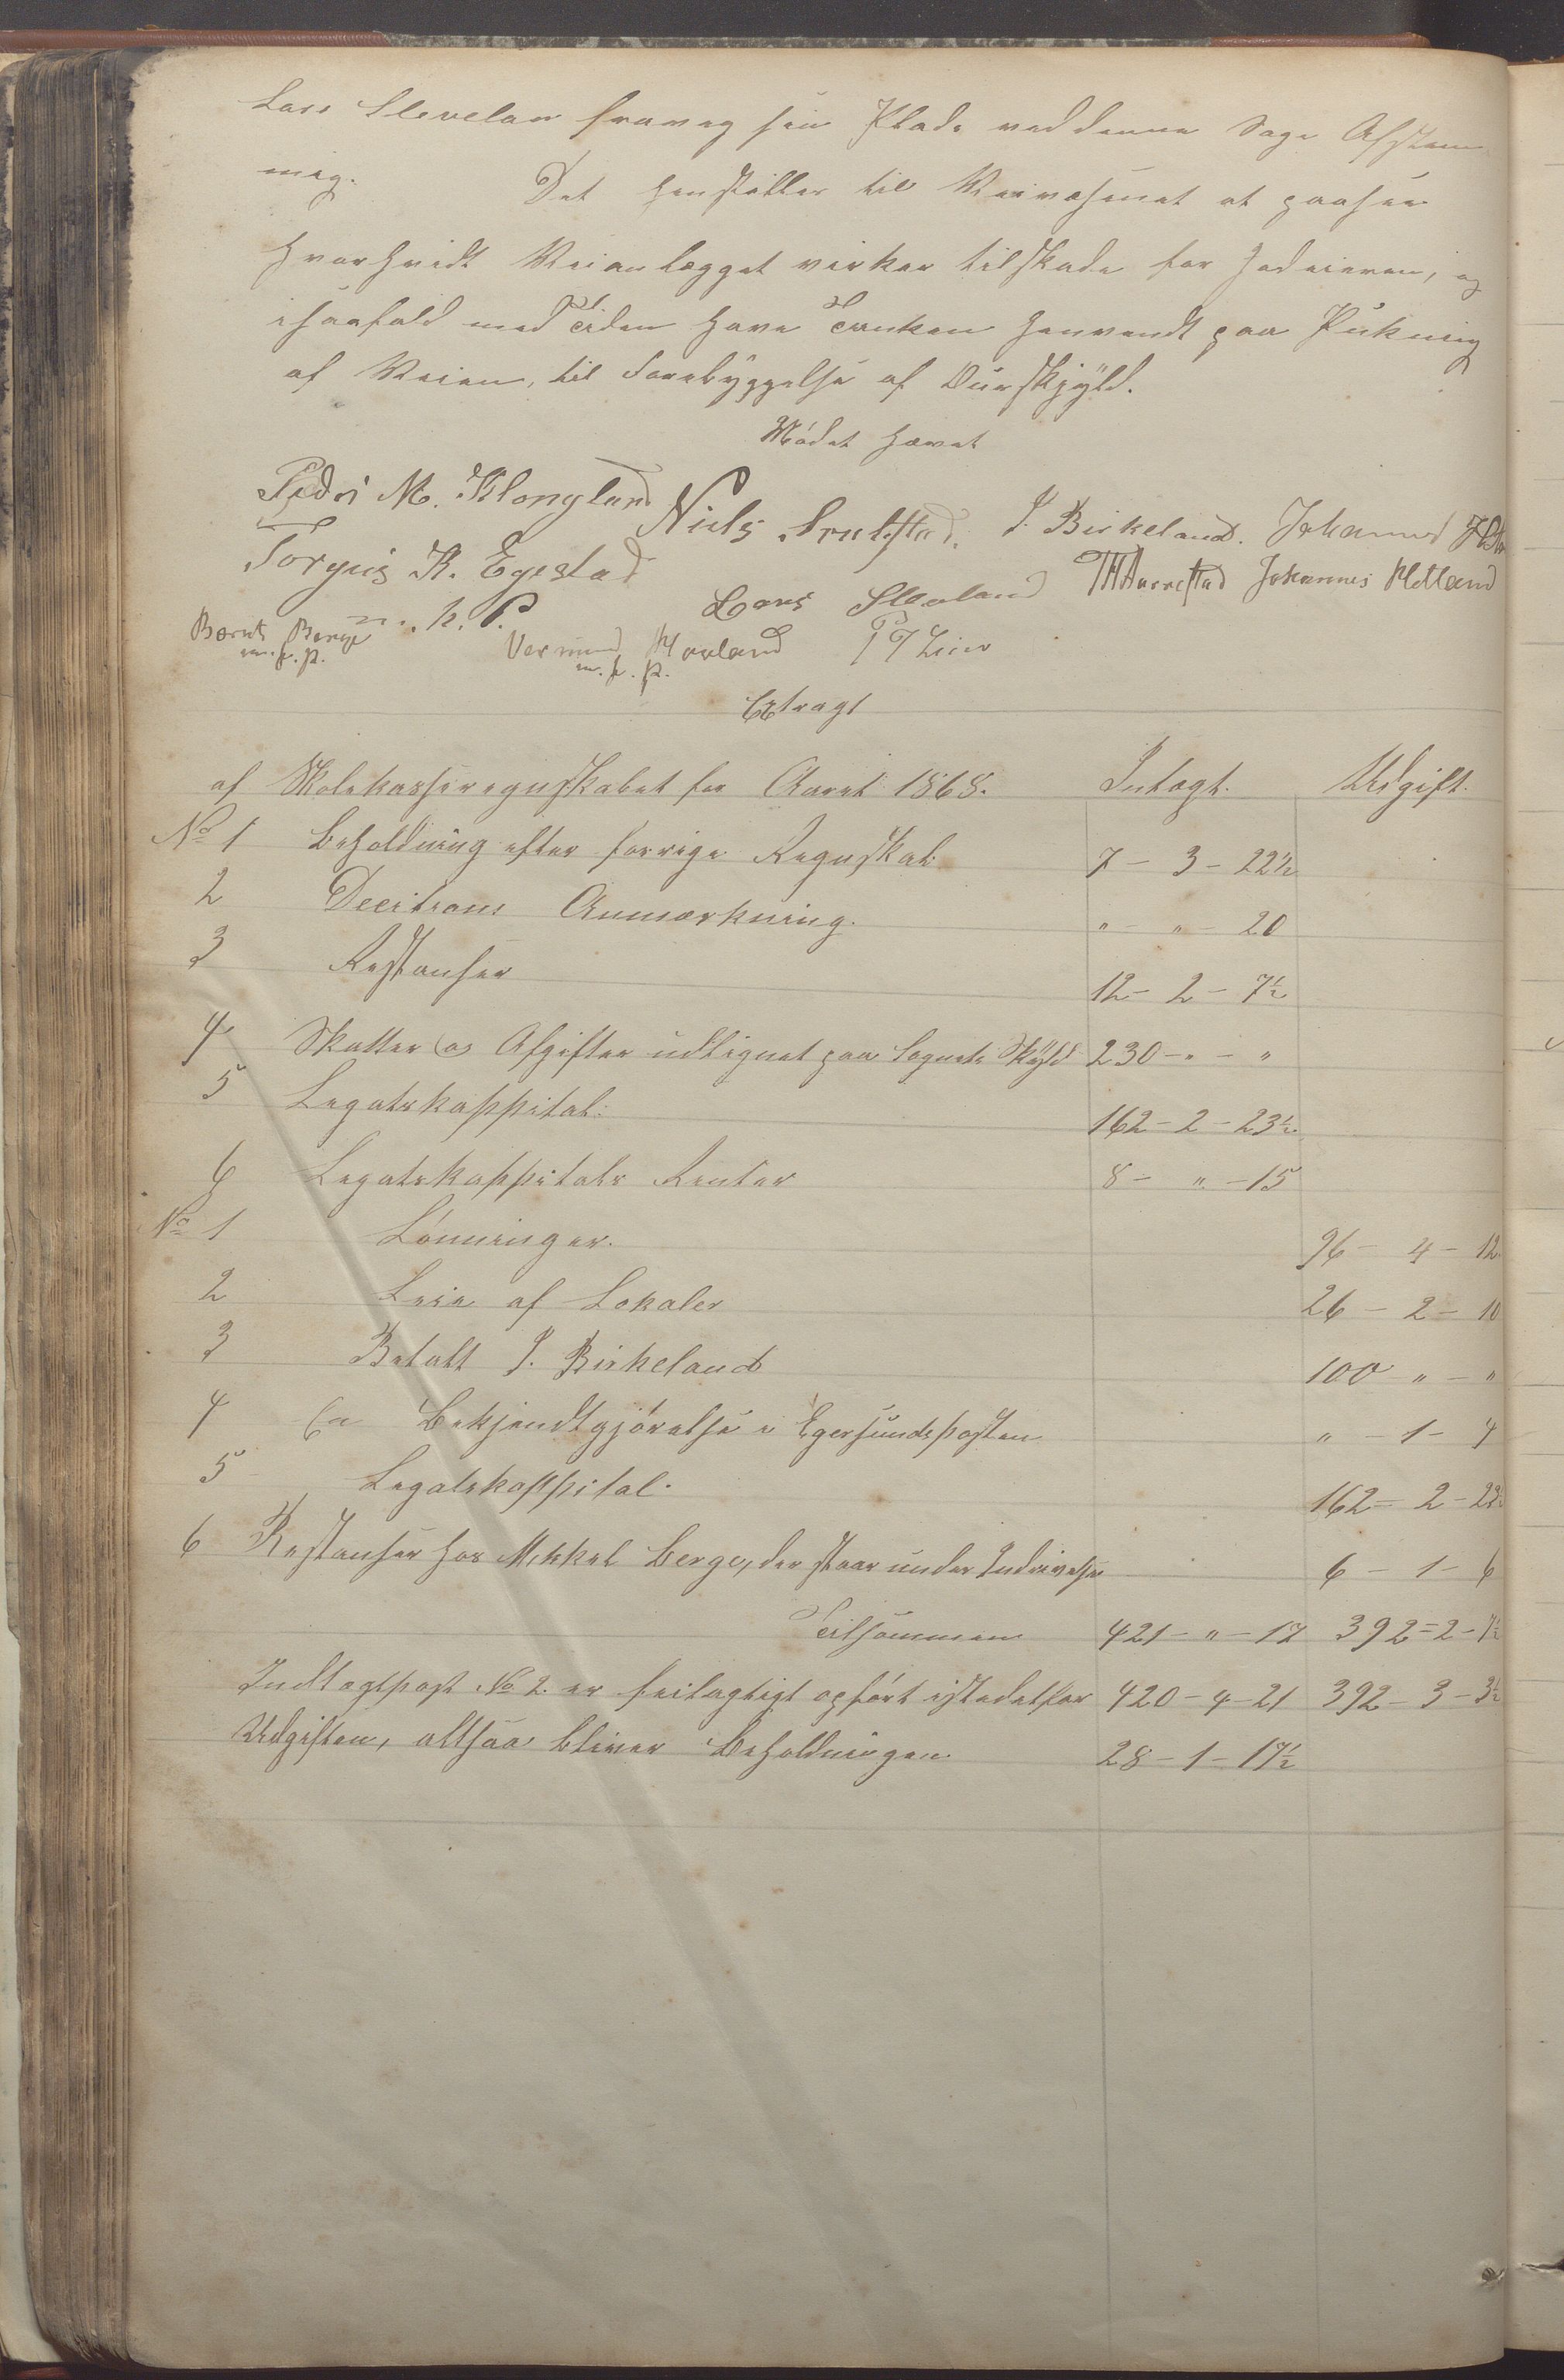 Lars Slevelan fraveg sin Plads ved denne Sags Afstem
nig. Det henstilles til Veivæsenet at paasee
hvorhvidt Veianlægget virker tilskade for Jodeieren, og
isaafald med Tiden have Tanken henvendt paa Pukning
af Veien, til Forebyggelse af Vurskjyld.
Mødet hævet
Peder M. Klongland Niels Arrestad. S. Birkeland. Johannes
Torgus K. Egestad Lars Sleveland TH Aarrestad Johannes Hetland
m. h. P.
Bernt Berge Vermund Hovland T T Lien
m. f. p. m. f. p.
Extragt
af Skolekasseregnskabet for Aaret 1868. Intægt. Udgift.
No 1 Beholdning efter forrige Regnskab 7 - 3 - 22½
2 Decitions Anmærkning. " - " - 20
3 Restanser 12 - 2 - 7½
4 Skatter og Afgifter udlignet paa Sognets Skyld 230 - " - "
5 Legatskappital: 162 - 2 - 23½
6 Legatskappitals Renter 8 - " - 15
No 1 Lønninger. 96 - 4 - 12
2 Leie af Lokaler 26 - 2 - 10
3 Betalt S. Birkeland 100 " - "
4 En Bekjendtgjørelse i Egersundsposten " - 1 - 4
5 Legatskappital. 162 = 2 - 23½
6 Restanser hos Mikkel Berge, der staar under Inddrivelse 6 - 1 - 6
Tilsammen 421 - " - 17 392 = 2 - 7½
Indtægtspost No 2. er feilagtigt opført istedetfor 420 - 4 - 21 392 - 3 - 3½
Udgiften, altsaa bliver Beholdningen 28 - 1 - 17½